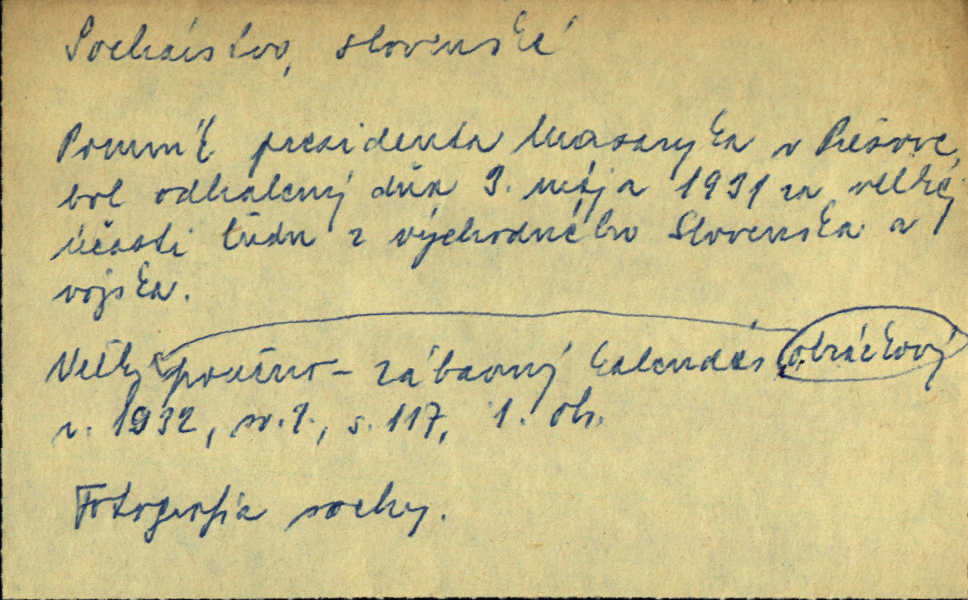 Sochárstvo, slovenské
Pomník presidenta Masaryka v Prešove,
bol odhalený dňa 3. mája 1931 za veľkej
účasti ľudu z východného Slovenska a
vojska.
Veľký poučno-zábavný kalendár obrázkový
r. 1932, s. 117, 1. obr.
Fotografia sochy.